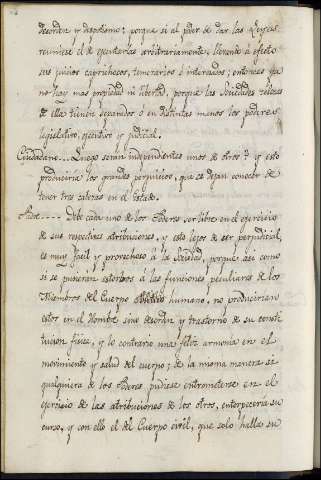 desorden y despotismo; porque si al poder de dar las Leyes
reuniese el de ejecutarlas arbitrariamente, llevaria á efecto
sus juicios caprichosos, temerarios é interesados; entonces ya
no hay mas propiedad ni libertad, porque las Sociedades
de ella tienen separados ó en distintas manos los poderes
legislativo, ejecutivo y judicial.
Ciudadano... Luego serán independientes unos de otros? y esto
produciria los grandes perjuicios, que se dejan conocer de
tener tres cabezas en el Estado.
Padre.... Debe cada uno de los Poderes ser libre en el ejercicio
de sus respectivas atribuciones, y esto lejos de ser perjudicial,
es muy facil y provechoso á la Sociedad, porque asi como
si se pusieran estorbos á las funciones peculiares de los
Miembros del Cuerpo humano, no producirian
estos en el Hombre sino desorden y trastorno de su consti
tucion fisica, y lo contrario una feliz armonia en el
movimiento y salud del cuerpo; de la misma manera si
qualquiera de los Poderes pudiese entrometerse en el
ejercicio de las atribuciones de los otros, entorpeceria su
curso, y con ello el del Cuerpo civil, que solo halla su